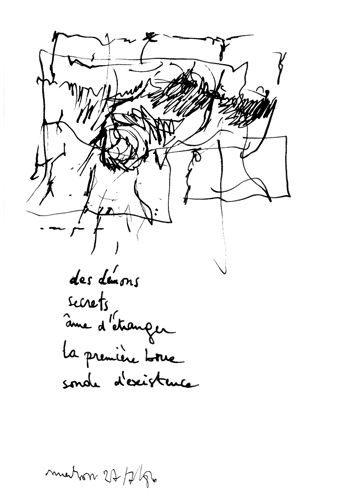 des démons
secrets
âme d'étranger
la première boue
sonde d'existence
27/7/96